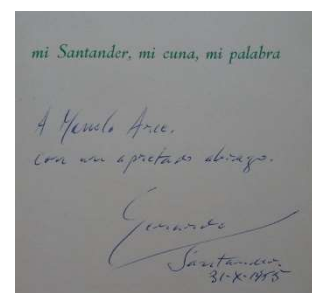 mi Santander, mi cuna, mi palabra
A Manolo Arce.
con un apretado abrazo.
Gerardo
Santander.
31-X-1955